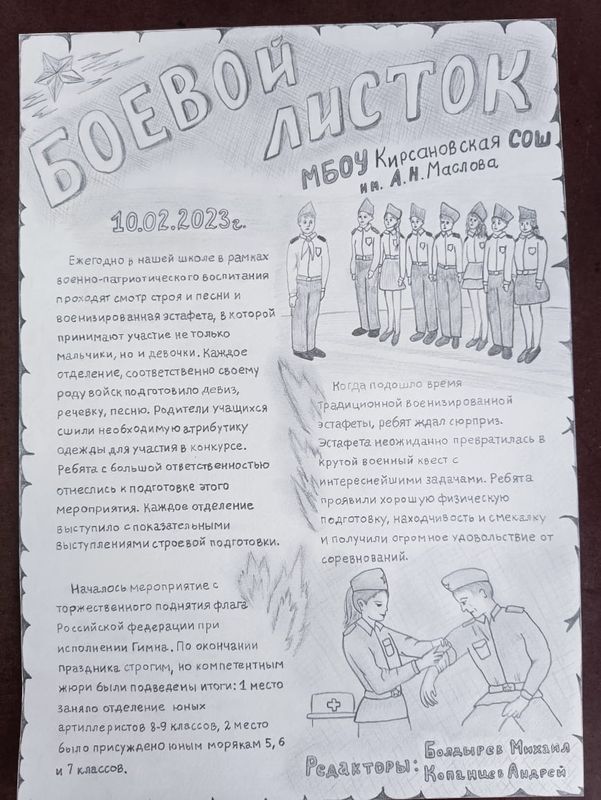 БОЕВОЙ
ЛИСТОК
МБОУ Кирсановская СОШ
им. А.Н.Маслова
10.02.2023г.
Ежегодно в нашей школе в рамках
военно-патриотического воспитания
проходят смотр строя и песни и
военизированная эстафета, в которой
принимают участие не только
мальчики, но и девочки. Каждое
отделение, соответственно своему
роду войск подготовило девиз,
речевку, песню. Родители учащихся
сшили необходимую атрибутику
одежды для участия в конкурсе.
Ребята с большой ответственностью
отнеслись к подготовке этого
мероприятия. Каждое отделение
выступило с показательными
выступлениями строевой подготовки.
Началось мероприятие с
торжественного поднятия флага
Российской федерации при
исполнении Гимна. По окончании
праздника строгим, но компетентным
жюри были подведены итоги: 1 место
заняло отделение юных
артиллеристов 8-9 классов, 2 место
было присуждено юным морякам 5, 6
и 7 классов.
Когда подошло время
традиционной военизированной
эстафеты, ребят ждал сюрприз.
Эстафета неожиданно превратилась в
крутой военный квест с
интереснейшими задачами. Ребята
проявили хорошую физическую
подготовку, находчивость и смекалку
и получили огромное удовольствие от
соревнований.
Редакторы: Болдырев Михаил
Копанцев Андрей